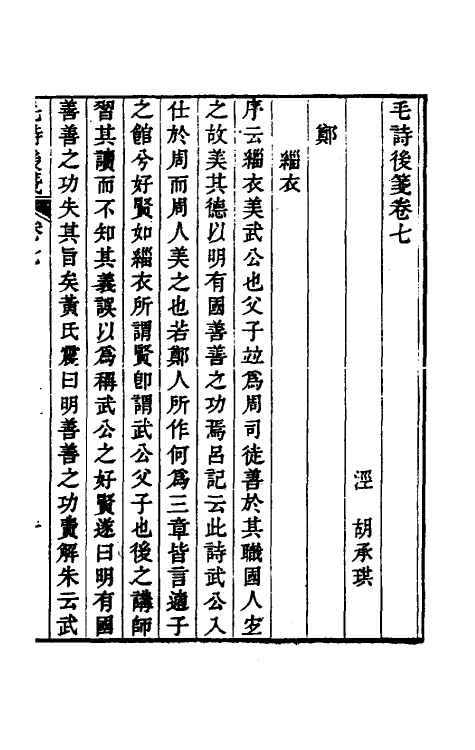 毛詩後箋卷七
涇　胡承珙
鄭
緇衣
序云緇衣美武公也父子竝爲周司徒善於其職國人宐
之故美其德以明有國善善之功焉呂記云此詩武公入
仕於周而周人美之也若鄭人所作何爲三章皆言適子
之館兮好賢如緇衣所謂賢卽謂武公父子也後之講師
習其讀而不知其義誤以爲稱武公之好賢遂曰明有國
善善之功失其旨矣黃氏震曰明善善之功費解朱云武
毛詩後箋 卷七 一